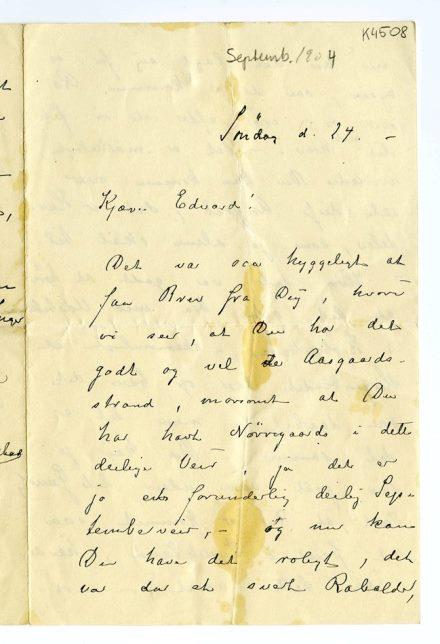 K4508
Septemb. 1904
Søndag d. 24. –
Kjære Edvard!
Det var saa hyggeligt at
faa Brev fra Dig, hvori
vi seer, at Du har det
godt og vel Aasgaard-
strand, morsomt at Du
har havt Nørregaards i dette
deilige Veir, ja det er
jo en forunderlig deilig Sep-
temberveir, – og nu kan
Du have det roligt, det
var da et svært Rabalder,